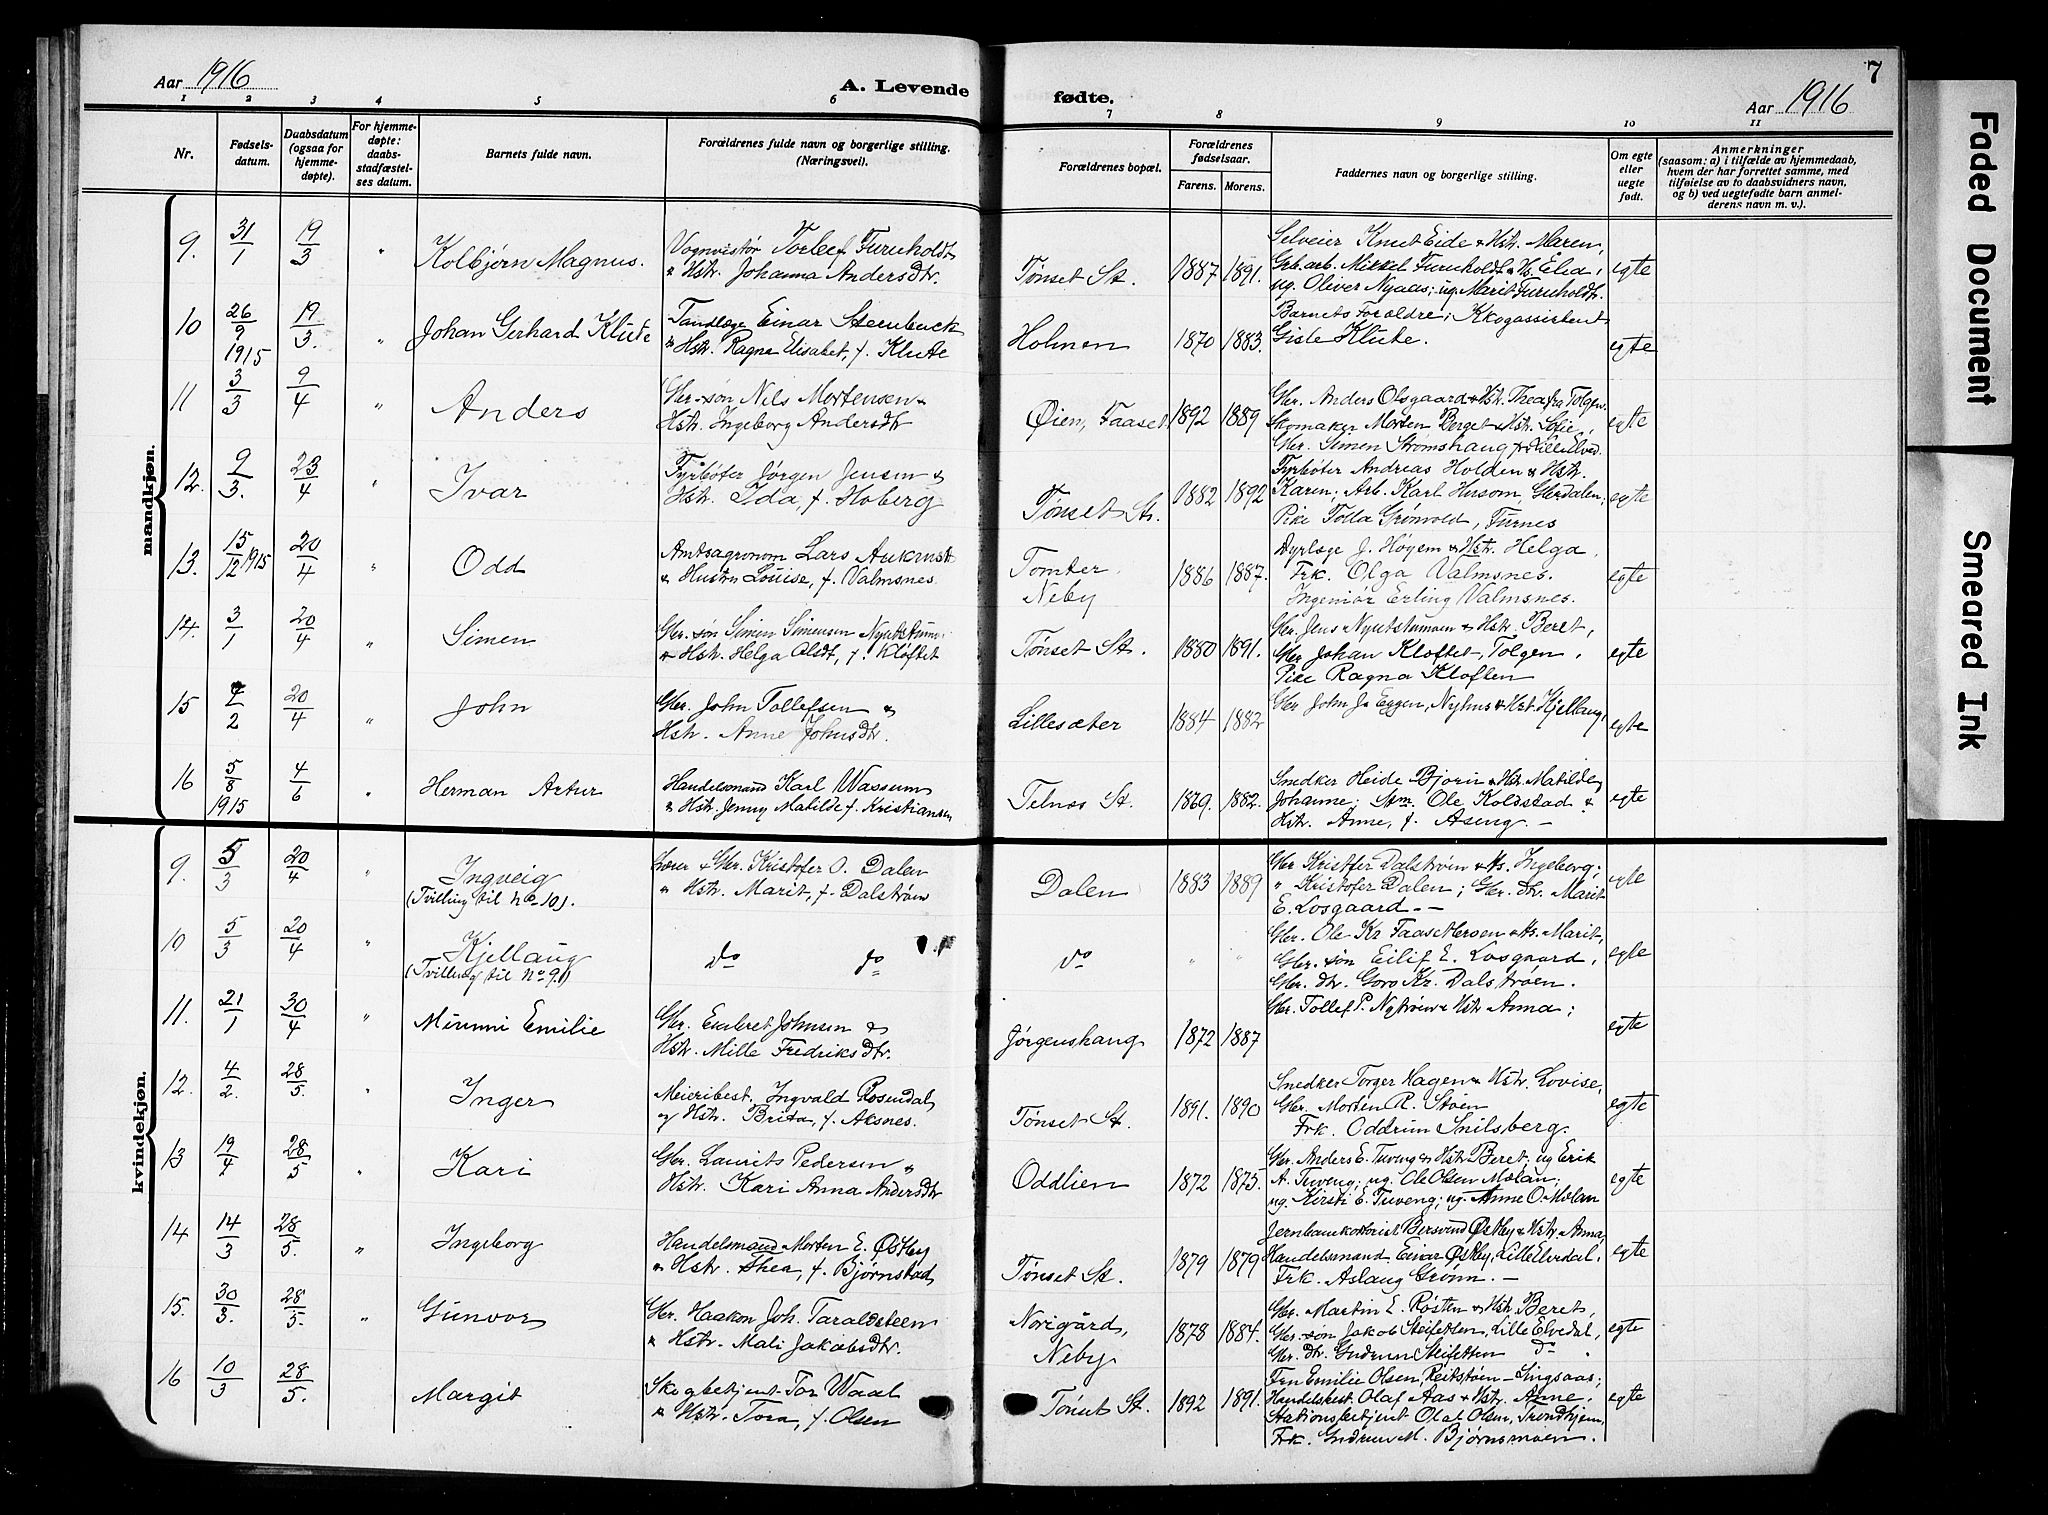 Aar 1916
A. Levende fødte.
7
Aar 1916
1 2 3 4 5 6 7 8 9 10 11
Nr.
Fødsels-
datum.
Duabsdatum
(ogsaa for
hjemme-
døpte).
For hjemme-
døpte:
daabs-
stadfæstel-
ses datum.
Barnets fulde navn.
Forældrenes fulde navn og borgerlige stilling.
(Næringsvei).
Forældrenes bopæl.
Forældrenes
fødselsaar.
Farens. Morens.
Faddernes navn og borgerlige stilling.
Om egte
eller
uegte
født.
Anmerkninger
(saasom: a) i tilfælde av hjemmedaab,
hvem der har forrettet samme, med
tilføielse av to daabsvidners navn,
og b) ved uegtefødte barn anmel-
derens navn m. v.).
mandkjøn.
9. 31/1 19/3 " Kolbjørn Magnus.
Vognvistør Torleef Furuholdt
& Hstr. Johanna Andersdtr.
Tønset St. 1887 1891.
Selveier Knut Eide & Hstr. Maren,
Grb.arb. Mikkel Furuholdt & Hs. Elia,
ug. Oliver Nyaas; ug. Marit Furuholdt.
egte
10 26/9 1915 19/3. " Johan Gerhard Klüte
Tandlæge Einar Steenbuck
& Hstr. Ragna Elisabet, f. Klute
Holmen 1870 1883.
Barnets Foreldre; Kkogassistent
Gisle Klüte.
egte
11 3/3 9/4 " Anders
Gbr.søn Nils Mortensen &
Hstr. Ingeborg Andersdtr
Øien, Faaset. 1892 1889
Gbr. Anders Olsgaard & Hstr. Thea fra Tolgen.
Skomaker Morten Berget & Hstr. Sofie,
Gbr. Simen Strømshaug fr. Lille Elved.
egte
12. 9/3. 23/4 " Ivar
Fyrbøter Jørgen Jensen &
Hstr. Ida, f. Hoberg
Tønset St. 1882 1892
Fyrbøter Andreas Holden & Hstr.
Karen; Arb. Karl Husom, Glerdalen,
Pike Tolla Grønvold, Furnes
egte
13. 15/12 1915 20/4 " Odd
Amtsagronom Lars Aukrust
& Hustru Louise, f. Valmsnes.
Tomter
Neby 1886 1887.
Dyrlæge J. Høyem & Hstr. Helga.
Frk. Olga Valmsnes.
Ingeniør Erling Valmsnes.
egte
14. 3/1 20/4 " Simen
Gbr.søn Simen Simensen Nyutstumo.
& Hstr. Helga Olsdt, f. Kløftet
Tønset St. 1880 1891.
Gbr. Jens Nyutstumoen & Hstr. Beret,
Gbr. Johan Kloftet, Tolgen.
Pike Ragna Kloften
egte
15 4/2 20/4 " John
Gbr. John Tollefsen &
Hstr. Anne Johnsdtr.
Lillesæter 1884 1882
Gbr John Js Eggen, Nyhus & Hst. Kjellaug,
egte
16 5/8 1915 4/6 " Herman Artur
Handelsmand Karl Wassum
& Hstr. Jenny Matilde f. Kristiansen
Telnes St. 1869. 1882.
Snedker Heide Bjorn & Hstr. Matilde
Johanne; Stm. Ole Koldstad &
Hstr. Anne, f. Aseng. —
egte
kvindekjøn.
9. 5/3 20/4 " Ingveig
(Tvilling til No 10).
Lærer & Gbr. Kristofer O. Dalen
& Hstr. Marit, f. Dalstrøen
Dalen 1883 1889
Gbr. Kristfer Dalstrøen & Hs. Ingeborg;
" Kristofer Dalen; Gbr. dtr. Marit
E. Losgaard. —
egte
10 5/3 20/4 " Kjellaug
(Tvilling til No 9.)
do do
do " "
Gbr. Ole Kr Faasethroen & Hs. Marit,
Gbr. søn Eilif E. Losgaard,
Gbr. dtr. Goro Kr. Dalstrøen.
egte
11. 21/1 30/4 " Mimmi Emilie
Gbr. Embret Johnsen &
Hstr. Mille Fredriksdtr.
Jørgenshaug 1872 1887
Gbr. Tollef P. Nytrøen & Hstr Anna;
egte
12. 4/2. 28/5. " Inger
Meieribest. Ingvald Rosendal
og Hstr. Brita, f. Aksnes.
Tønset St. 1891. 1890
Snedker Torger Hagen & Hstr. Lovise,
Gbr. Morten R. Støen
Frk. Oddrun Snilsberg.
egte
13 19/4 28/5 " Kari
Gbr. Laurits Pedersen &
Hstr. Kari Anna Andersdtr
Oddlien 1872 1875.
Gbr. Anders E. Tuveng & Hstr. Beret; ug Erik
A. Tuveng; ug. Ole Olsen Mølan;
ug. Kirsti E. Tuveng; ug. Anne O. Mølan
egte
14 14/3 28/5. " Ingeborg
Handelsmand Morten E. Østby
& Hstr. Thea, f. Bjørnstad
Tønset St. 1879 1879
Jernbankontorist Bersvend Østby & Hstr. Anna,
Handelsmand Einar Østby, Lille Elverdal.
Frk. Aslaug Grønn. —
egte
15. 30/3. 28/5. " Gunvor
Gbr. Haakon Joh. Taraldsteen
& Hstr. Mali Jakobsdtr.
Norigård,
Neby 1878 1884.
Gbr. Martin E. Røsten & Hstr. Beret,
Gbr. søn Jakob Steifetsen, Lille Elvedal,
Gbr. dtr. Gudrun Steifetsen do .
egte
16 10/3 28/5. " Margit
Skogbetjent Tor Waal
& Hstr. Tora, f. Olsen
Tønset St. 1892 1891.
Fru Emilie Olsen, Reitstøen – Singsaas;
Handelsbest. Olaf Aas & Hstr. Anne.
Stationsbetjent Olaf Olsen, Trondhjem,
Frk. Gudrun M. Bjørnsmoen.
egte
Faded Document
Smeared Ink